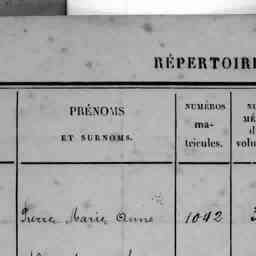 RÉPERTOIRE
PRÉNOMS
ET SURNOMS.
NUMÉROS
ma-
tricules.
Pierre Marie Anne 1042